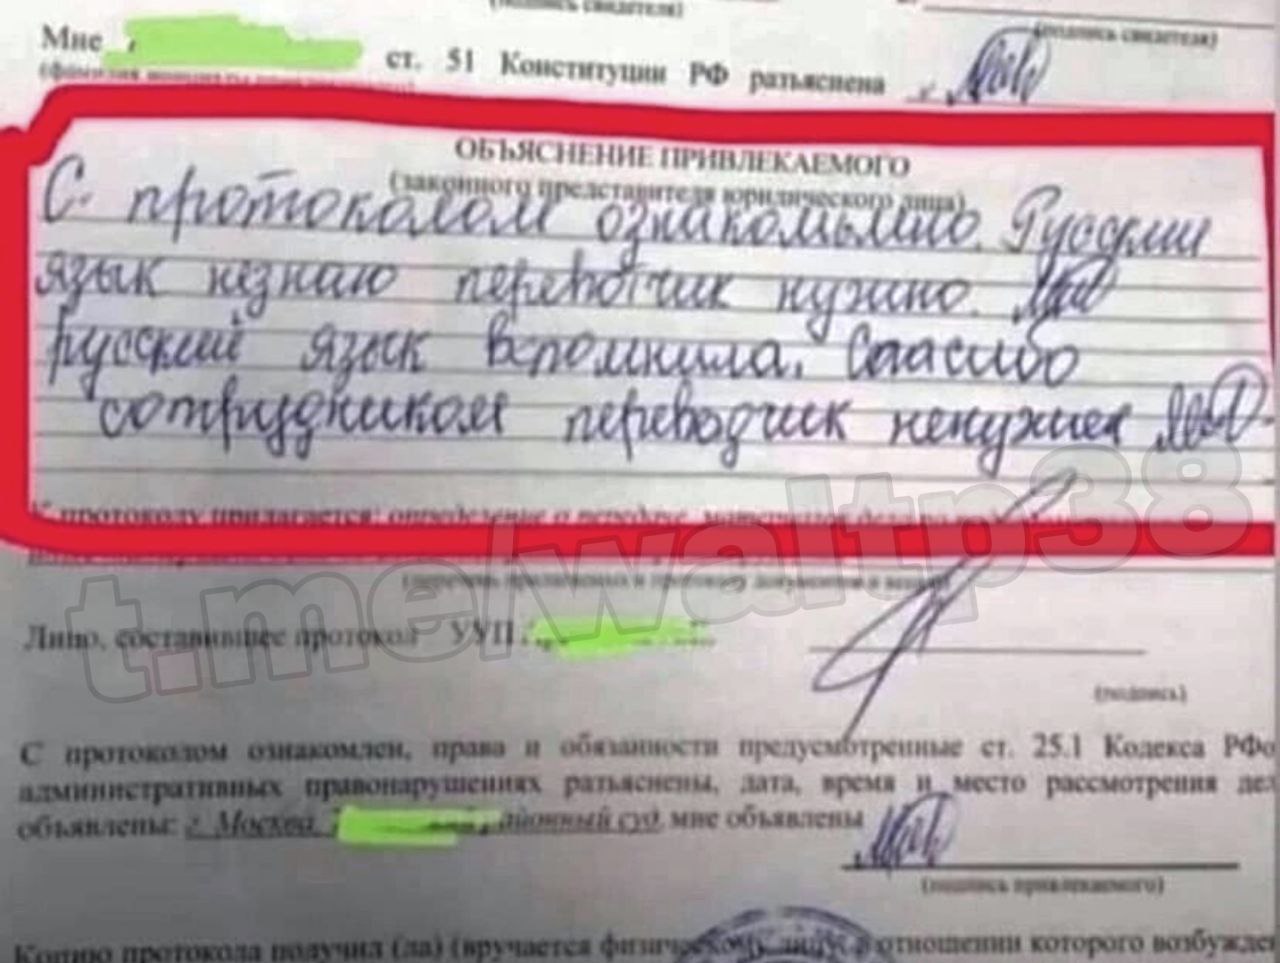 (подпись свидетеля)
(подпись свидетеля)
Мне ст. 51 Конституции РФ ратьяснена
ОБЪЯСНЕНИЕ ПРИВЛЕКАЕМОГО
(законного представителя юридического лица)
С протоколом ознакомьмно. Русский
язык незнаю перевотчик нужно.
Русский язык вспомнила. Спасибо
сотрудником переводчик ненужен
К протоколу прилагается: определение о передаче,
(перечень прилагаемых к протоколу документов и вещей)
Лицо, составившее протокол УУП
(подпись)
С протоколом ознакомлен, права и обязанности предусмотренные ст. 25.1 Кодекса РФо
административных правонарушениях ратьяснены, дата, время и место рассмотрения де
объявлены: г. Москва, районный суд, мне объявлены
(подпись привлекаемого)
Копию протокола получил (ла) (вручается физическому лицу, в отношении которого возбужде
t.me/waltp38